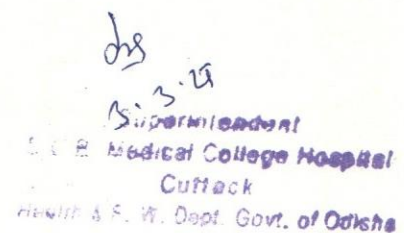 Superintendent
S. C. B. Medical College Hospital
Cuttack
Health & F. W. Dept. Govt. of Odisha